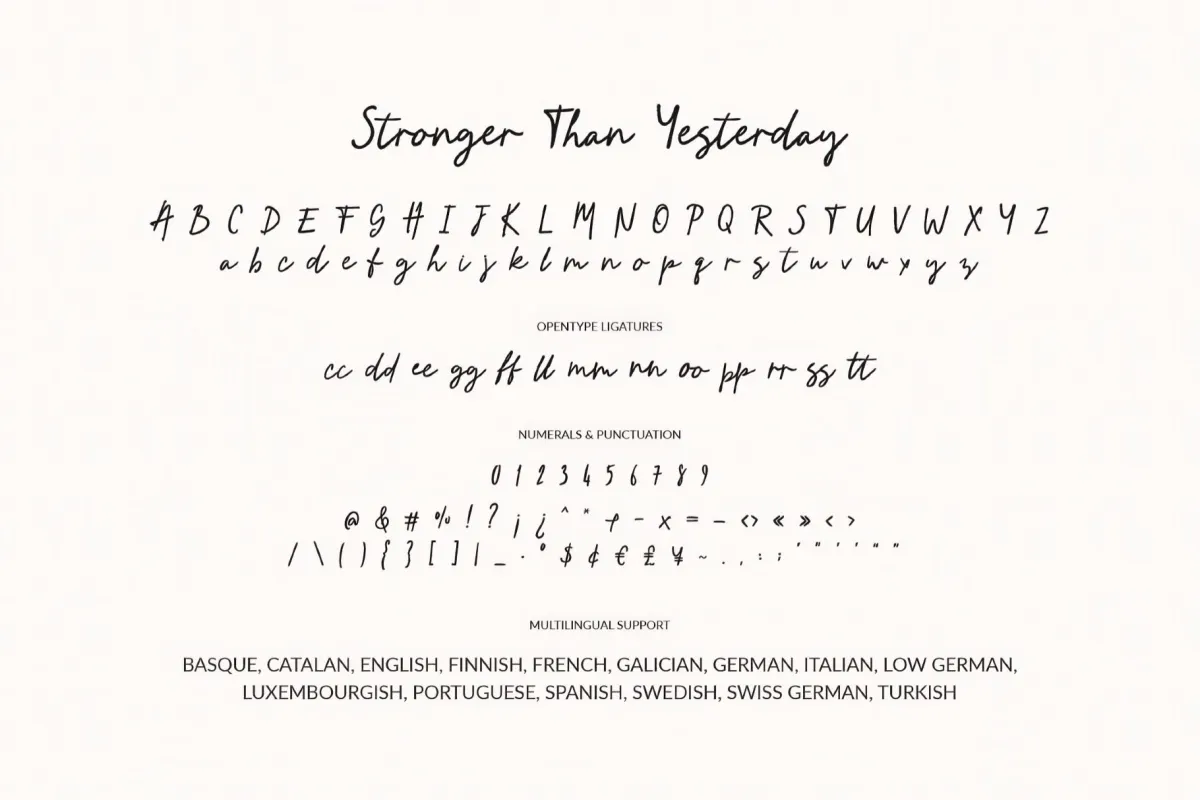 Stronger Than Yesterday
A B C D E F G H I J K L M N O P Q R S T U V W X Y Z
a b c d e f g h i j k l m n o p q r s t u v w x y z
OPENTYPE LIGATURES
cc dd ee gg ff ll mm nn oo pp rr ss tt
NUMERALS & PUNCTUATION
0 1 2 3 4 5 6 7 8 9
@ & # % ! ? ¡ ¿ ^ * + - x = – <> « » < >
/ \ ( ) { } [ ] | _ · ° $ ¢ € £ ¥ ~ . , : ; ' " ‘ ’ “ ”
MULTILINGUAL SUPPORT
BASQUE, CATALAN, ENGLISH, FINNISH, FRENCH, GALICIAN, GERMAN, ITALIAN, LOW GERMAN,
LUXEMBOURGISH, PORTUGUESE, SPANISH, SWEDISH, SWISS GERMAN, TURKISH